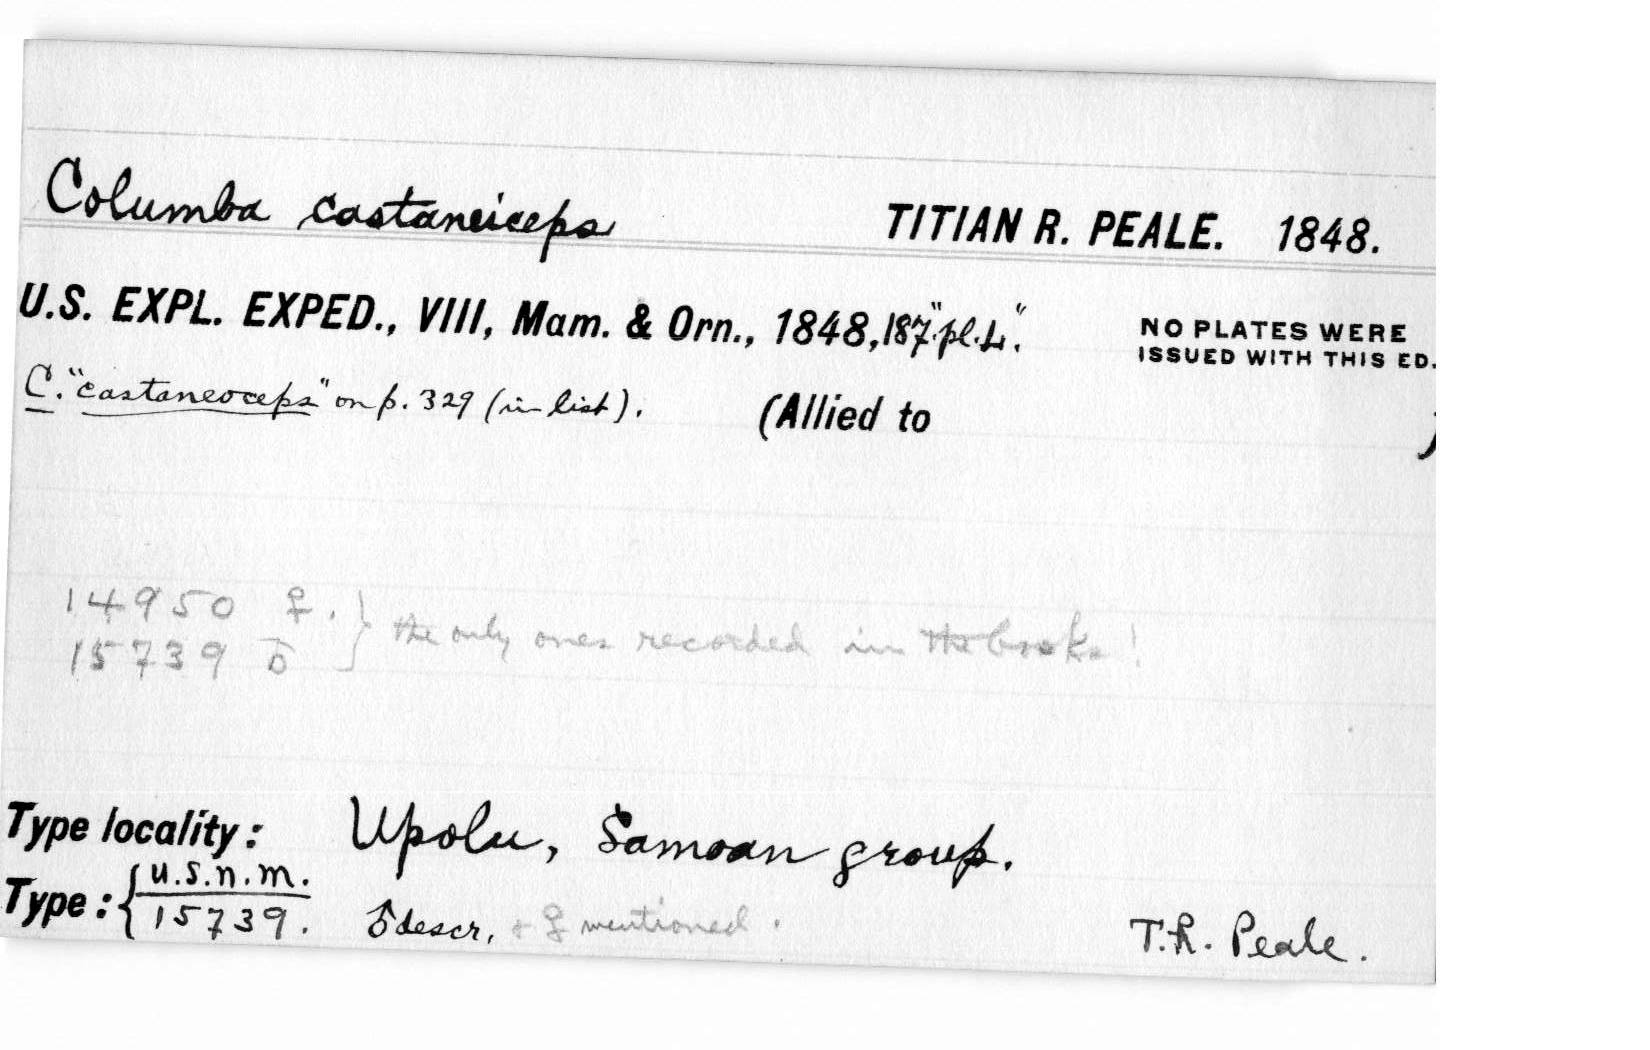 Columba castaneiceps TITIAN R. PEALE. 1848.
U.S. EXPL. EXPED., VIII, Mam. & Orn., 1848, 187, "pl. L".
NO PLATES WERE
ISSUED WITH THIS ED.
C. "castaneoceps" on p. 329 (in list).
(Allied to )
14950 ♀. } the only ones recorded in the books!
15739 ♂
Type locality: Upolu, Samoan group.
Type: { U.S.N.M.
15739. ♂ descr, + ♀ mentioned. T.R. Peale.